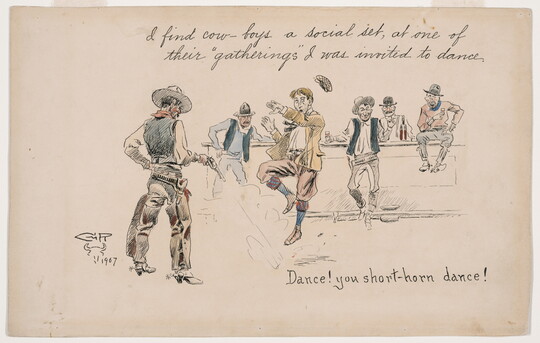 I find cow-boys a social set, at one of
their "gatherings" I was invited to dance.
CMR
1907
Dance! you short-horn dance!